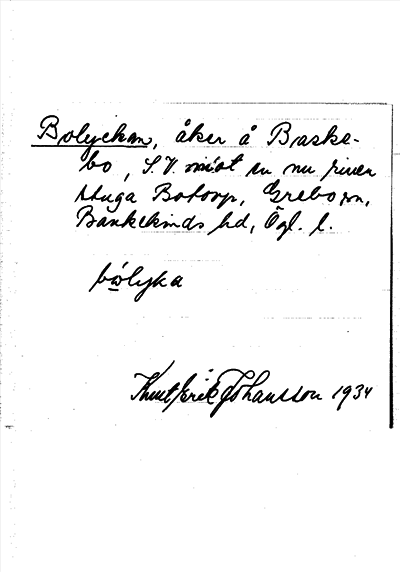 Bolyckan, åker å Baske-
bo, S.V. mot en nu riven
stuga Botorp, Grebo sn,
Bankekinds hd, Ögl. l.
bolyka
Knut Erik Johansson 1934